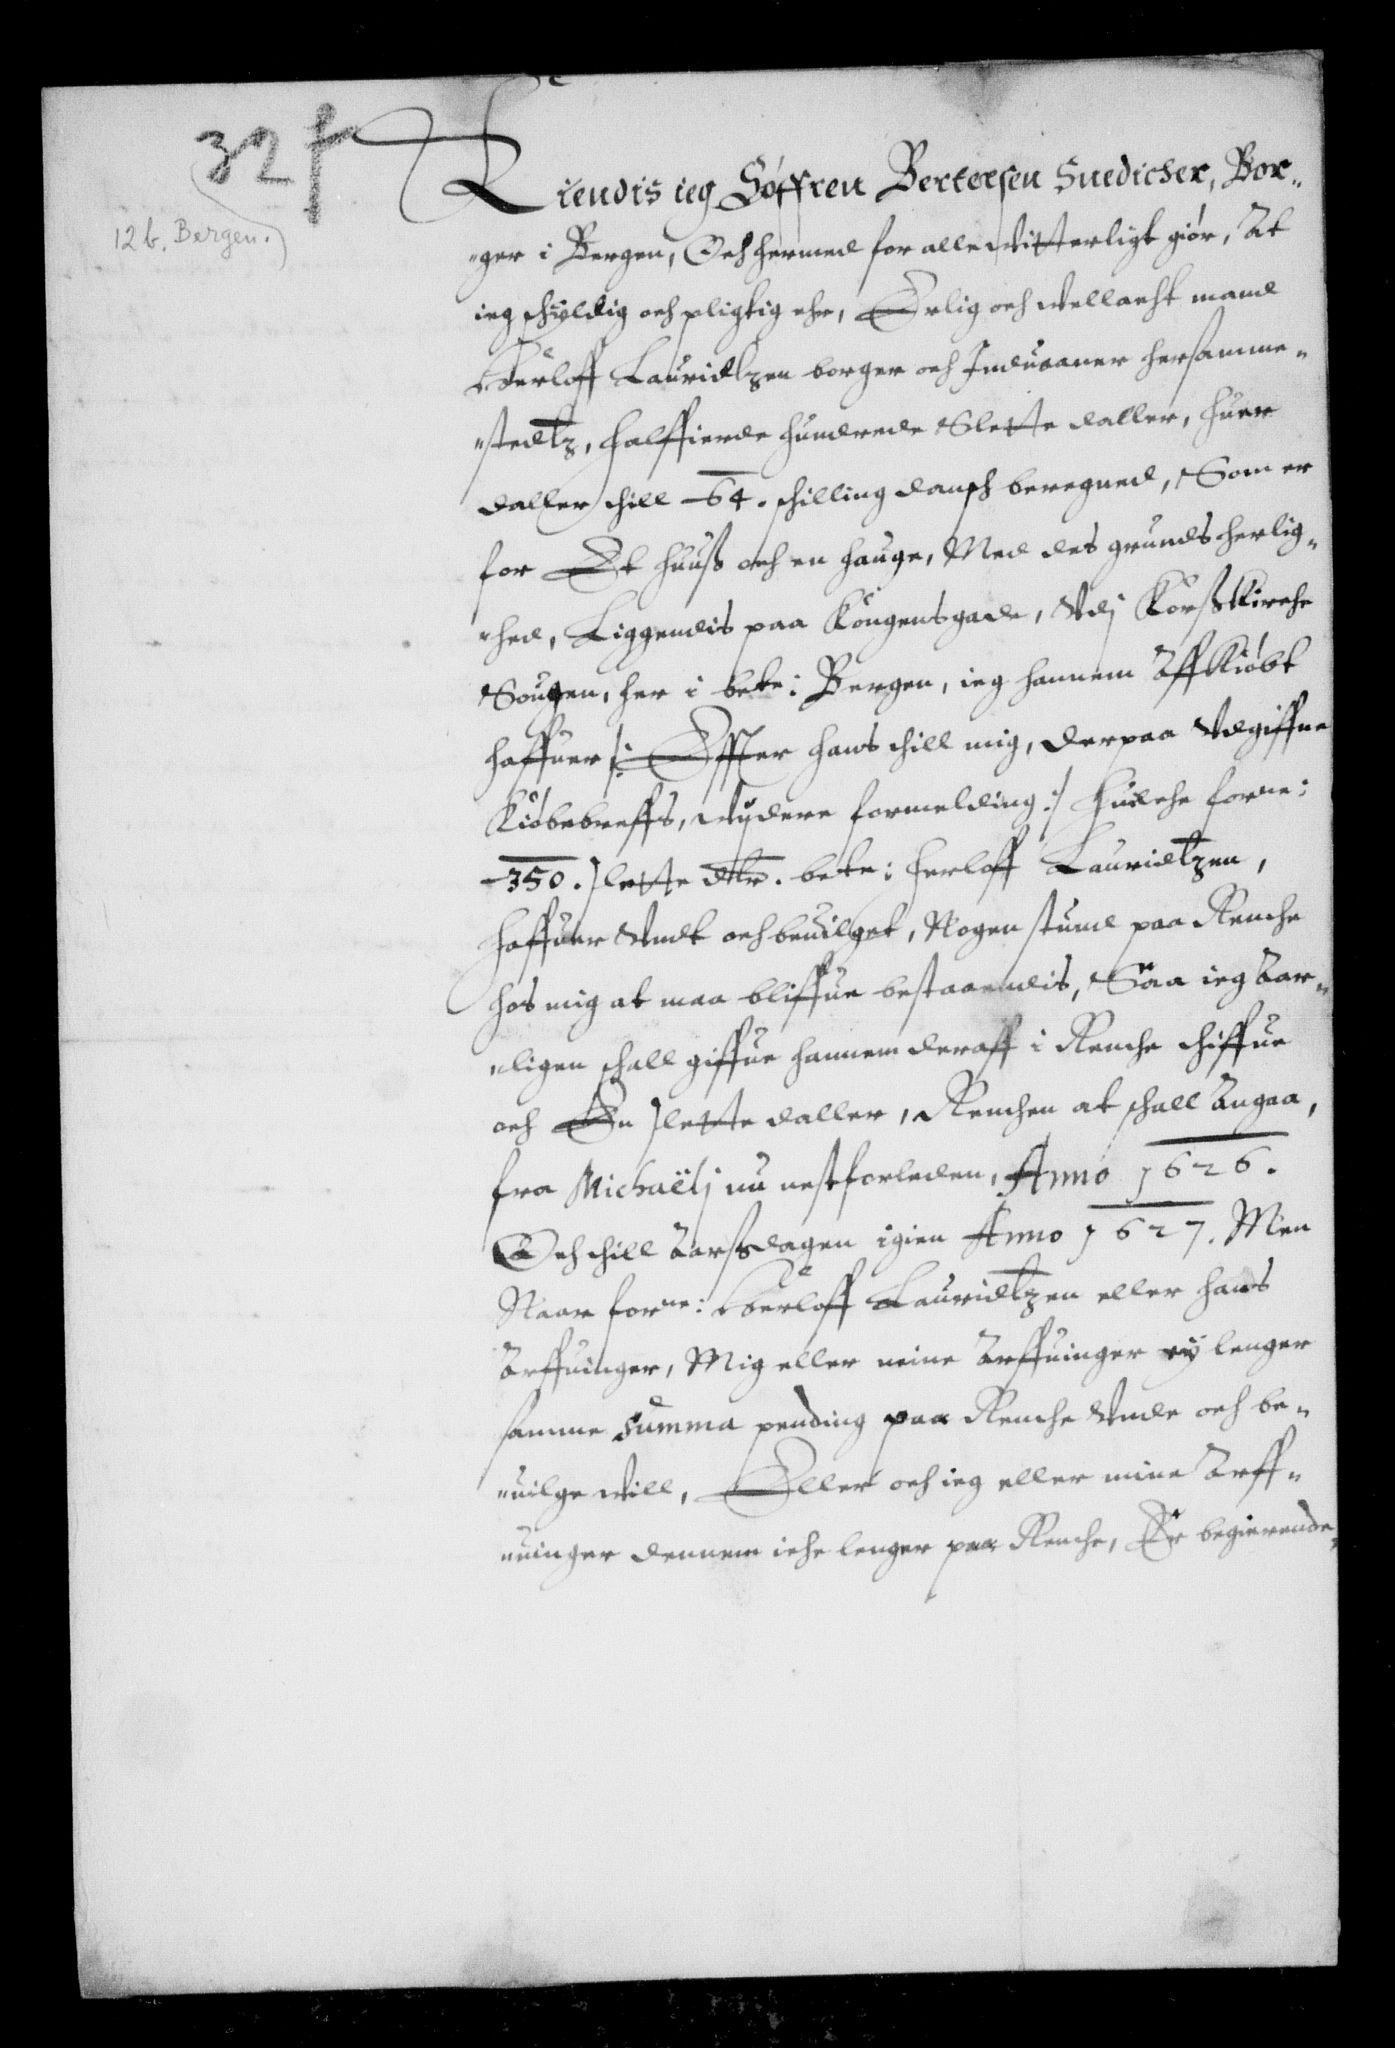 32 f
12 b. Bergen.)
Kiendis ieg Søffren Bertelsen Snedicher, Bor-
-ger i Bergen, Och hermed for alle witterligt giør, At
ieg schyldig och pligtig ehr, Erlig och wellacht mand
Herloff Lauridtzen borger och Induaaner hersamme-
-stedtz, halffierde hundrede Slette daller, huer
daller thill 64. schilling dansch beregned, Som er
for Et huuß och en hauge, Med des grunds herlig-
-hed, Liggendis paa Kongensgade, Vdj Korßkirche
Sougen, her i bete: Bergen, ieg hannem Aff Kiøbt
haffuer /: Effter hans thill mig, derpaa Vdgiffne
Kiøbebreffs, wydere formelding :/ Huilche forne:
350. slette dlr. bete: Herloff Lauridtzen,
Haffuer Vndt och beuilget, Nogen stund paa Renthe
hos mig at maa bliffue bestaaendis, Saa ieg Aar-
-ligen schall giffue hannem deraff i Renthe thiffue
och En slette daller, Renthen at schall Angaa,
fra Michaëlj nu nestforleden, Anno 1626.
Och thill Aarsdagen igien Anno 1627. Men
Naar forne: Herloff Lauridtzen eller hans
Arffuinger, Mig eller mine Arffuinger ey lenger
samme Summa pending paa Renthe Vnde och be-
-uilge will, Eller och ieg eller mine Arff-
-uinger dennem iche lenger paa Renthe, Er begierende,